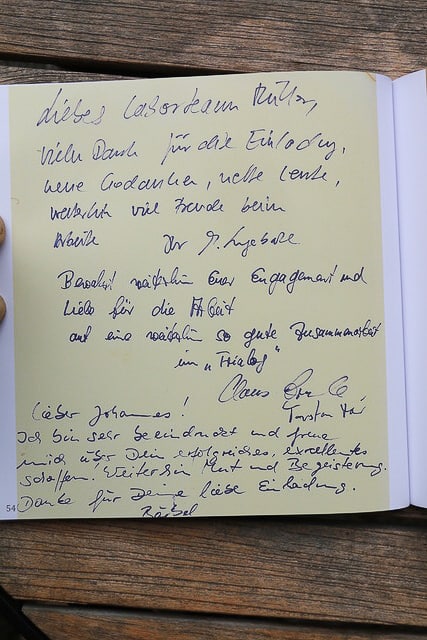 liebes Laborteam Müller,
vielen Dank für die Einladung,
neue Gedanken, nette Leute,
weiterhin viel Freude beim
Arbeiten Ihr
Bewahrt weiterhin Euer Engagement und
Liebe für die Arbeit
auf eine weiterhin so gute Zusammenarbeit
im „Trialog“
Claus
Lieber Johannes! Torsten
Ich bin sehr beeindruckt und freue
mich über Dein erfolgreiches, exzellentes
Schaffen. Weiterhin Mut und Begeisterung.
Danke für Deine liebe Einladung.
54 Bärbel